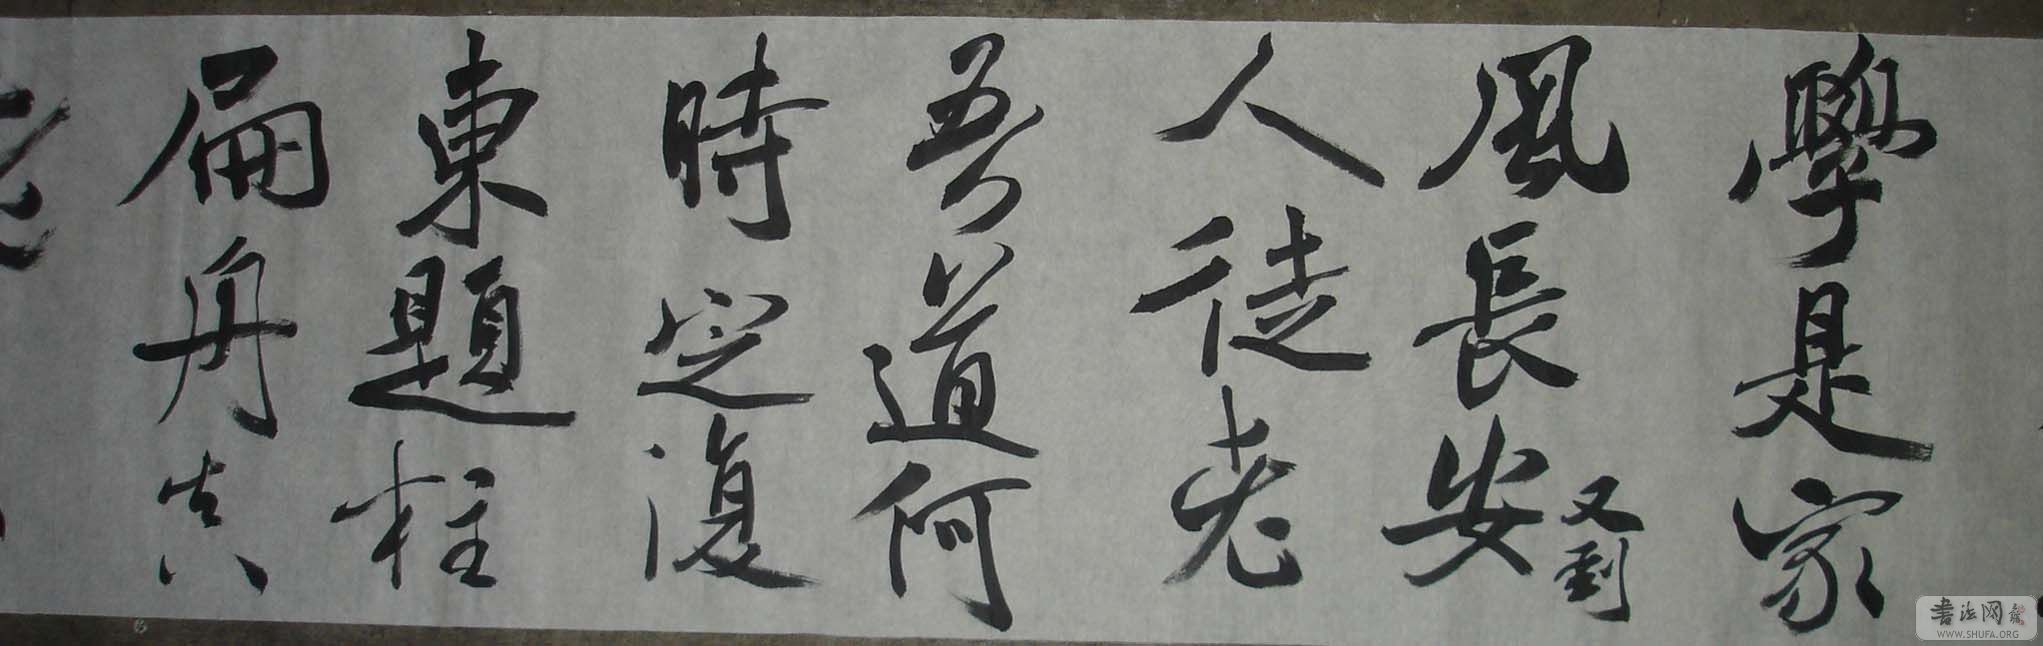 學是家
風長安
又到
人徒老
吾道何
時定復
東題柱
扁舟真
書法网
WWW.SHUFA.ORG